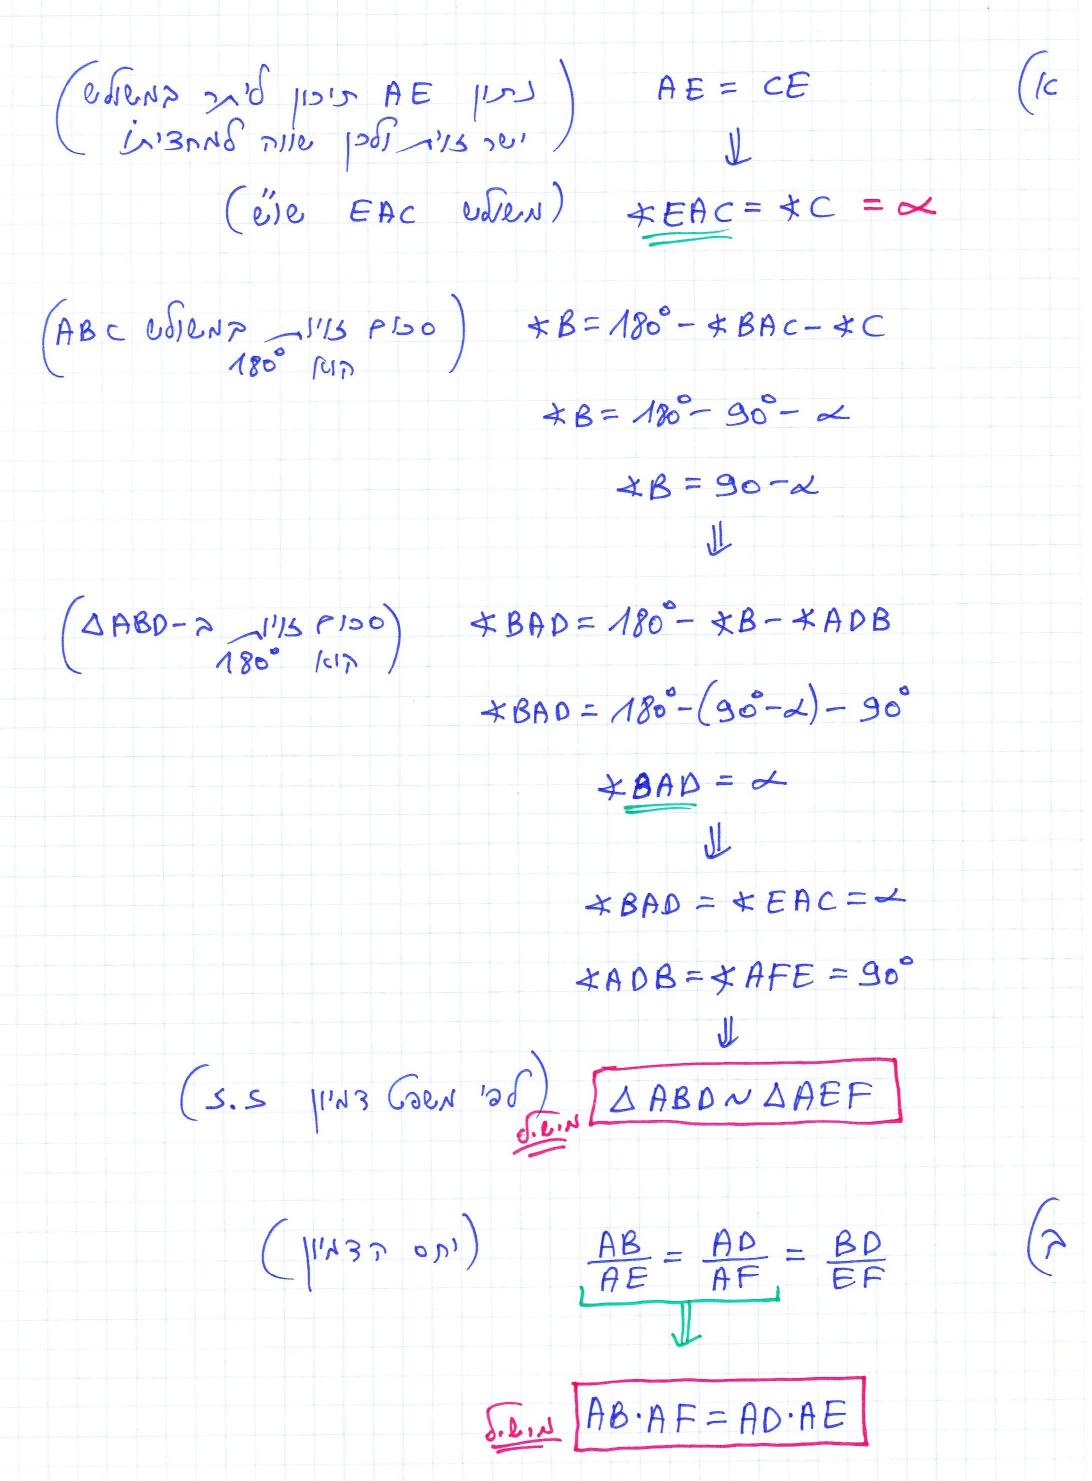 א) AE = CE (נתון AE תיכון ליתר במשולש
ישר זווית ולכן שווה למחציתו)
⇓
∢EAC = ∢C = α (משולש EAC שו"ש)
∢B = 180° - ∢BAC - ∢C (סכום זוויות במשולש ABC
הוא 180°)
∢B = 180° - 90° - α
∢B = 90 - α
⇓
∢BAD = 180° - ∢B - ∢ADB (סכום זוויות ב-ΔABD
הוא 180°)
∢BAD = 180° - (90° - α) - 90°
∢BAD = α
⇓
∢BAD = ∢EAC = α
∢ADB = ∢AFE = 90°
⇓
ΔABD ~ ΔAEF (לפי משפט דמיון ז.ז)
מ.ש.ל
ב) AB/AE = AD/AF = BD/EF (יחס הדמיון)
⇓
AB·AF = AD·AE מ.ש.ל